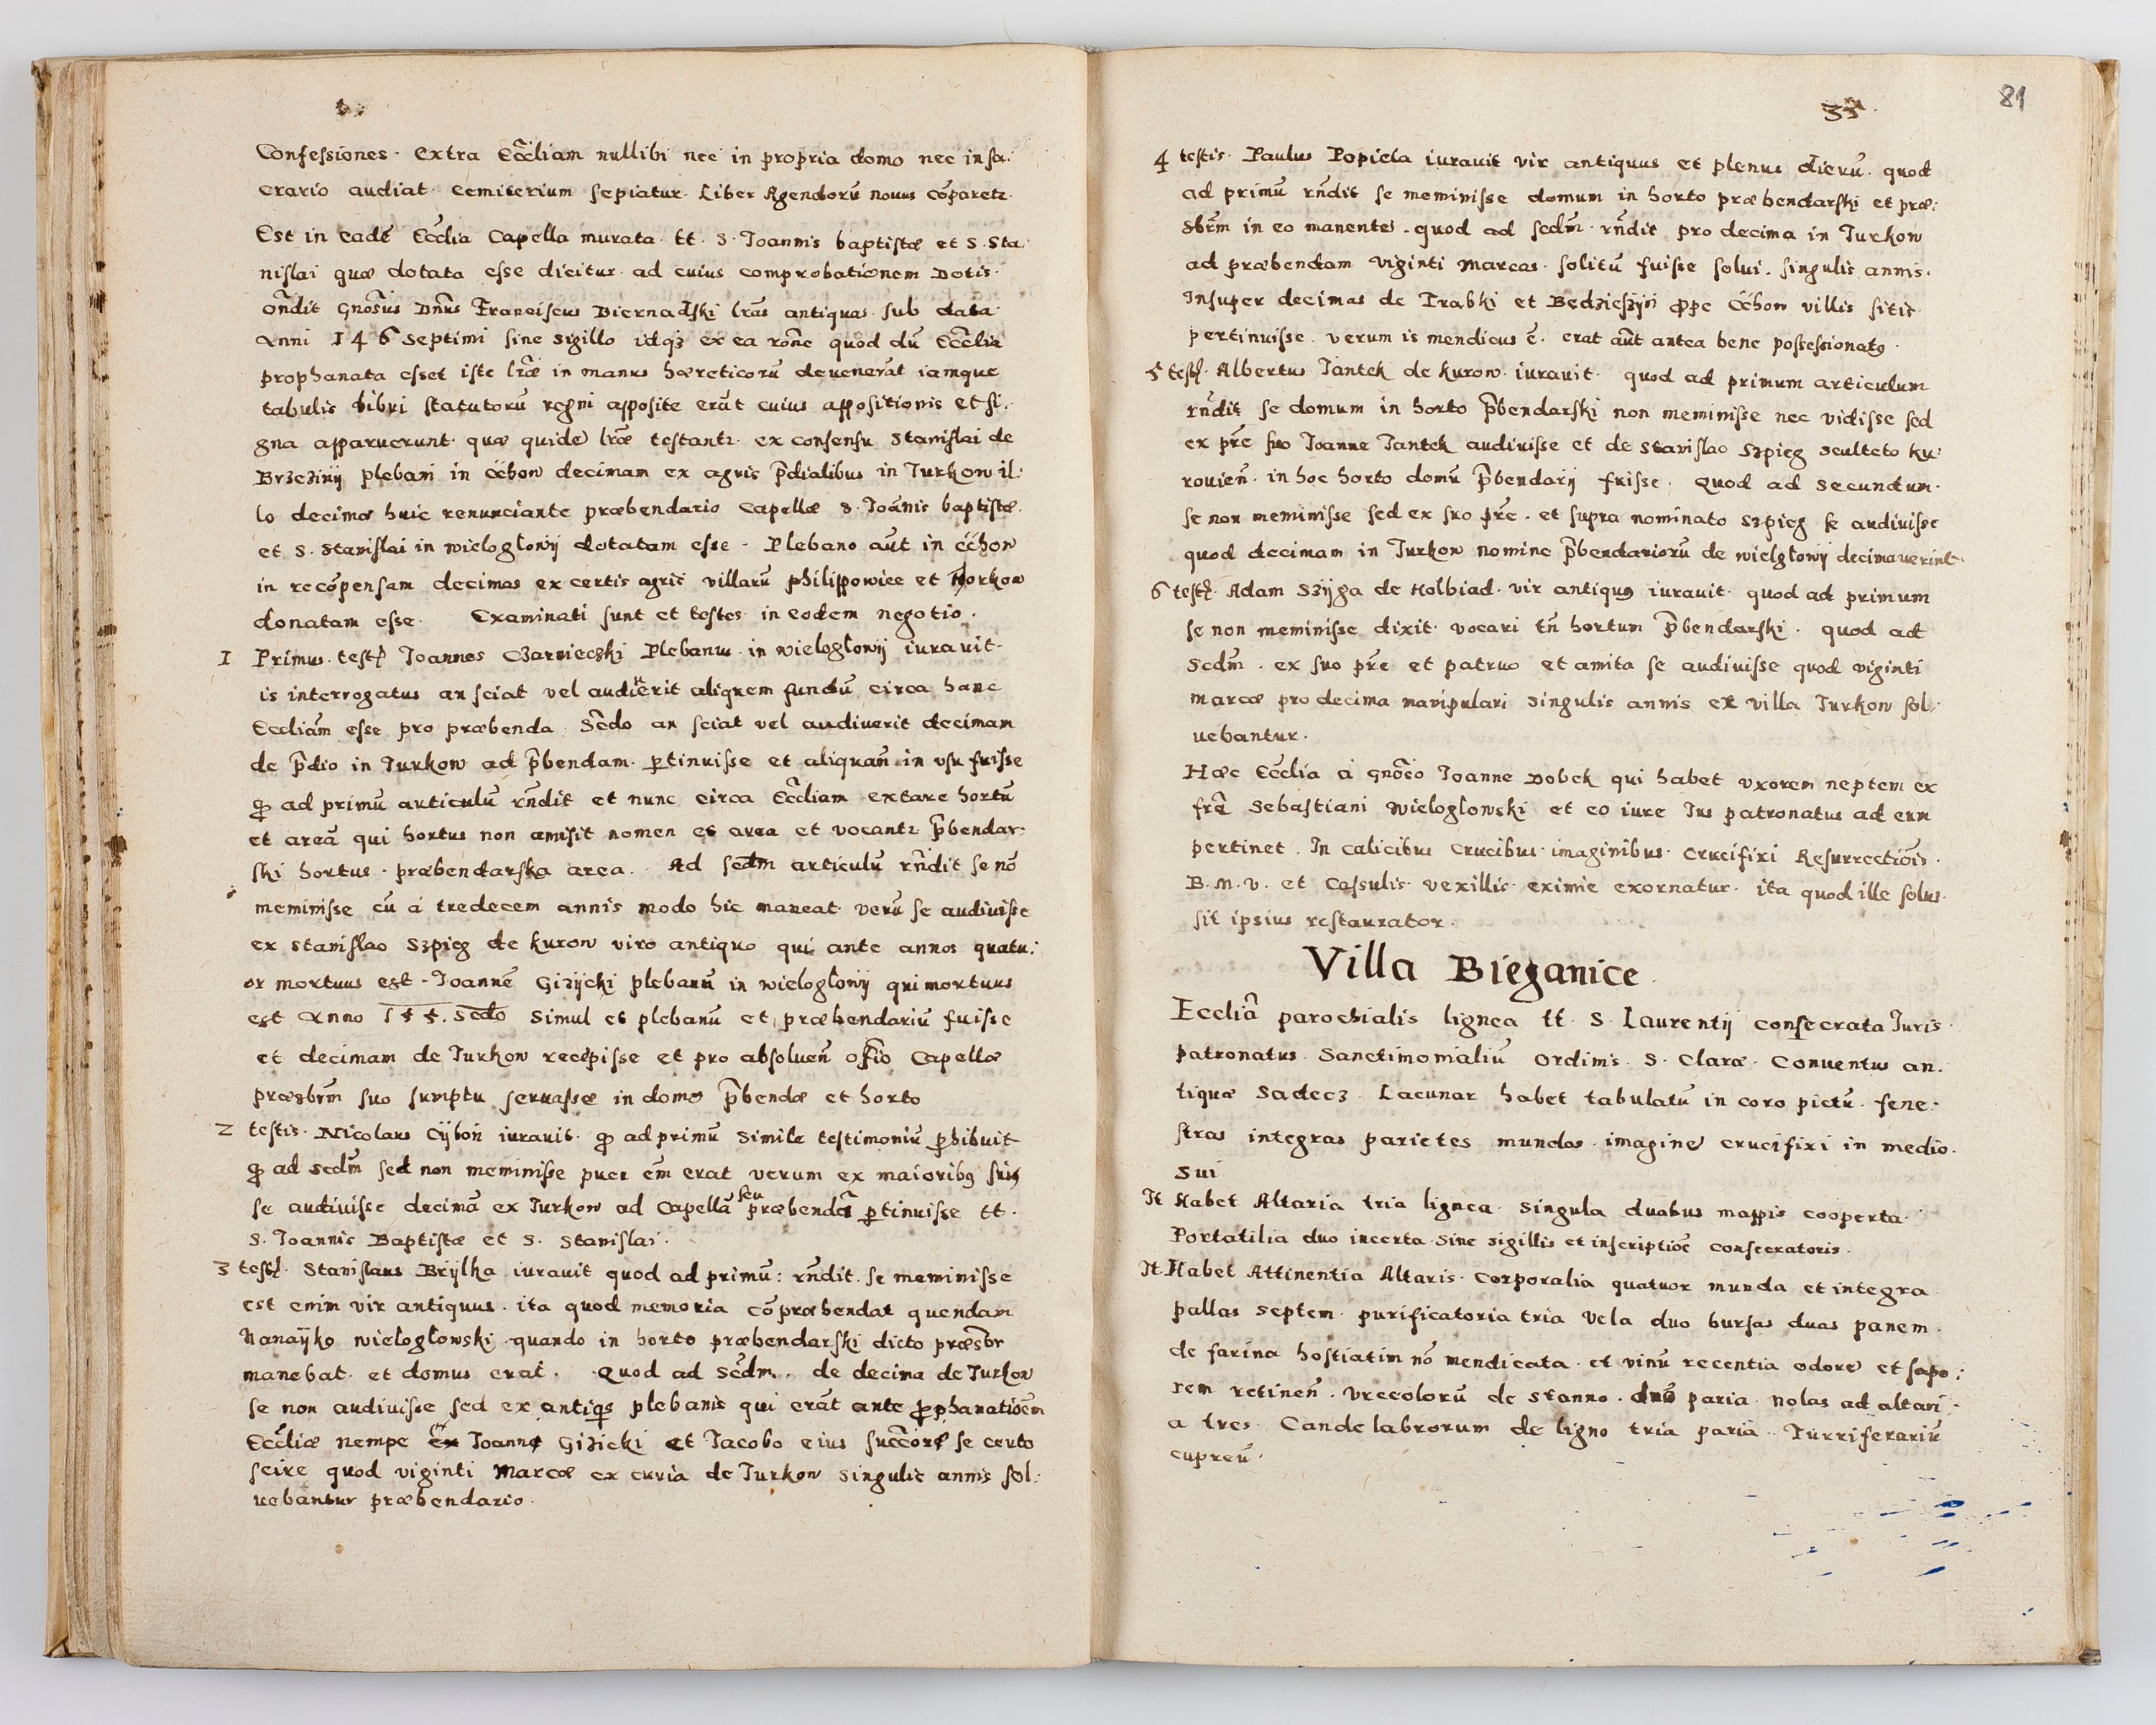 Confessiones. extra Ecc̃liam nullibi nec in propria domo nec in sa:
crario audiat. cemiterium sepiatur. Liber Agendorũ nouus cõparetr.
Est in eadẽ Ecc̃lia Capella murata. tt. S. Joannis baptistæ et S. Sta:
nislai quæ dotata esse dicitur. ad cuius comprobationem Dotis.
oñdit Gnõsus Dñus Franciscus Biernadski lr̃as antiquas sub data
Anni 146 septimi sine sigillo idqꝫ ex ea rõne quod dũ Ecc̃lia
prophanata esset iste lr̃æ in manus hæreticorũ deuenerãt iamque
tabulis libri statutorũ regni apposite erãt cuius appositionis et si:
gna apparuerunt. quæ quidẽ lr̃æ testantr. ex consensu Stanislai de
Brzezinÿ plebani in Cc̃how decimam ex agris p̃dialibus in Jurkow il:
lo decimæ huic renunciante præbendario Capellæ S. Joãnis baptistæ.
et S. Stanislai in wielogłowÿ dotatam esse. Plebano aũt in cc̃how
in recõpensam decimas ex certis agris villarũ philippowice et Horkow
donatam esse. Examinati sunt et testes in eodem negotio.
1 Primus. testꝭ Joannes Czarnieczki Plebanus in wielogłowÿ iurauit.
is interrogatus an sciat vel audiuerit aliquem fundũ circa hanc
Eccliam̃ esse pro præbenda. Sc̃do an sciat vel audiuerit decimam
de p̃dio in Jurkow ad p̃bendam. ꝑtinuisse et aliquañ in vsu fuisse
ꝙ ad primũ articulũ rñdit et nunc circa Ecc̃liam extare hortũ
et areã qui hortus non amisit nomen et area et vocantr p̃bendar:
ski hortus. præbendarska area. Ad secdm articulũ rñdit se nõ
meminisse cũ á tredecem annis modo hic maneat verũ se audiuisse
ex stanislao Szpieg de kurow viro antiquo qui ante annos quatu:
or mortuus est. Joannẽ Gizÿcki plebanũ in wielogłowÿ qui mortuus
est Anno 155. secdo simul et plebanũ et præbendariũ fuisse
et decimam de Jurkow recepisse et pro absoluen̄ offio Capellæ
præsbrm̃ suo sumptu seruasse in domo p̃bendæ et horto
2 testis. Nicolaus Cÿboń iurauit. ꝙ ad primũ simile testimoniũ ꝑhibuit
ꝙ ad secdm̃ sed non meminisse puer em̃ erat verum ex maioribꝯ suis
se audiuisse decimã ex Jurkow ad Capellã seu præbendã ꝑtinuisse tt.
S. Joannis Baptistæ et S. Stanislai.
3 testꝭ. Stanislaus Brÿlka iurauit quod ad primũ: rñdit. se meminisse
est enim vir antiquus. ita quod memoria cõpræbendat quendam
Nanaÿko wielogłowski quando in horto præbendarski dicto præsbr
manebat. et domus erat. Quod ad Sec̃dm. de decima de Jurkow
se non audiuisse sed ex antiqs plebanis qui erãt ante ꝓphanatioẽm
Ecc̃liæ nempe ex Joanne Gizicki et Jacobo eius succ̃ore se certo
scire quod viginti Marcæ ex curia de Jurkow singulis annis sol:
uebantur præbendario.
35
81
4 testis. Paulus Popiela iurauit vir antiquus et plenus dierũ. quod
ad primũ rñdit se meminisse domum in horto præbendarski et præ:
sbrm̃ in eo manentẽ. quod ad secdm̃ rñdit pro decima in Jurkow
ad præbendam viginti marcas. solitũ fuisse solui. singulis annis.
Insuper decimas de Trabki et Bedzieszÿń ꝓpe Cc̃how villis sitis
pertinuisse. verum is mendicus ẽ. erat aũt antea bene possessionatꝯ.
5 testꝭ. Albertus Jantek de kurow. iurauit. quod ad primum articulum
rñdit se domum in horto p̃bendarski non meminisse nec vidisse sed
ex pr̃e suo Joanne Jantek audiuisse et de stanislao Szpieg sculteto ku
rouien̄. in hoc horto domũ p̃bendarÿ fuisse. Quod ad secundum.
se non meminisse sed ex suo pr̃e. et supra nominato szpieg se audiuisse
quod decimam in Jurkow nomine p̃bendariorũ de wielgłowÿ decimauerint.
6 testꝭ. Adam Szÿga de Holbiad. vir antiquꝯ iurauit. quod ad primum
se non meminisse dixit. vocari tñ hortum p̃bendarski. quod ad
Secdm̃. ex suo pr̃e et patruo et amita se audiuisse quod viginti
marcæ pro decima manipulari singulis annis ex villa Jurkow sol:
uebantur.
Hæc Ecc̃lia á gnõso Joanne Dobek qui habet vxorem neptem ex
frẽ Sebastiani Wielogłowski et eo iure Jus patronatus ad eum
pertinet. In calicibus crucibus imaginibus. Crucifixi Resurrectiõis.
B. M. V. et Cassulis. vexillis eximie exornatur. ita quod ille solus.
sit ipsius restaurator.
Villa Bieganice.
Eccliã parochialis lignea tt. S. Laurentÿ consecrata Juris
patronatus. Sanctimonialiũ Ordinis. S. Claræ. Conuentus an.
tiquæ Sadecz. Lacunar habet tabulatũ in coro pictũ. fene:
stras integras parietes mundos imaginẽ crucifixi in medio.
sui
It Habet Altaria tria lignea. singula duabus mappis cooperta.
Portatilia duo incerta sine sigillis et inscriptiõe consecratoris.
It Habet Attinentia Altaris. Corporalia quatuor munda et integra
pallas septem. purificatoria tria Vela duo bursas duas panem.
de farina hostiatim nõ mendicata. et vinũ recentia odorẽ et sapo:
rem retinen̄. Vrecolorũ de stanno. duo paria. nolas ad altari:
a tres. Candelabrorum de ligno tria paria. Turriferariũ
cupreũ.